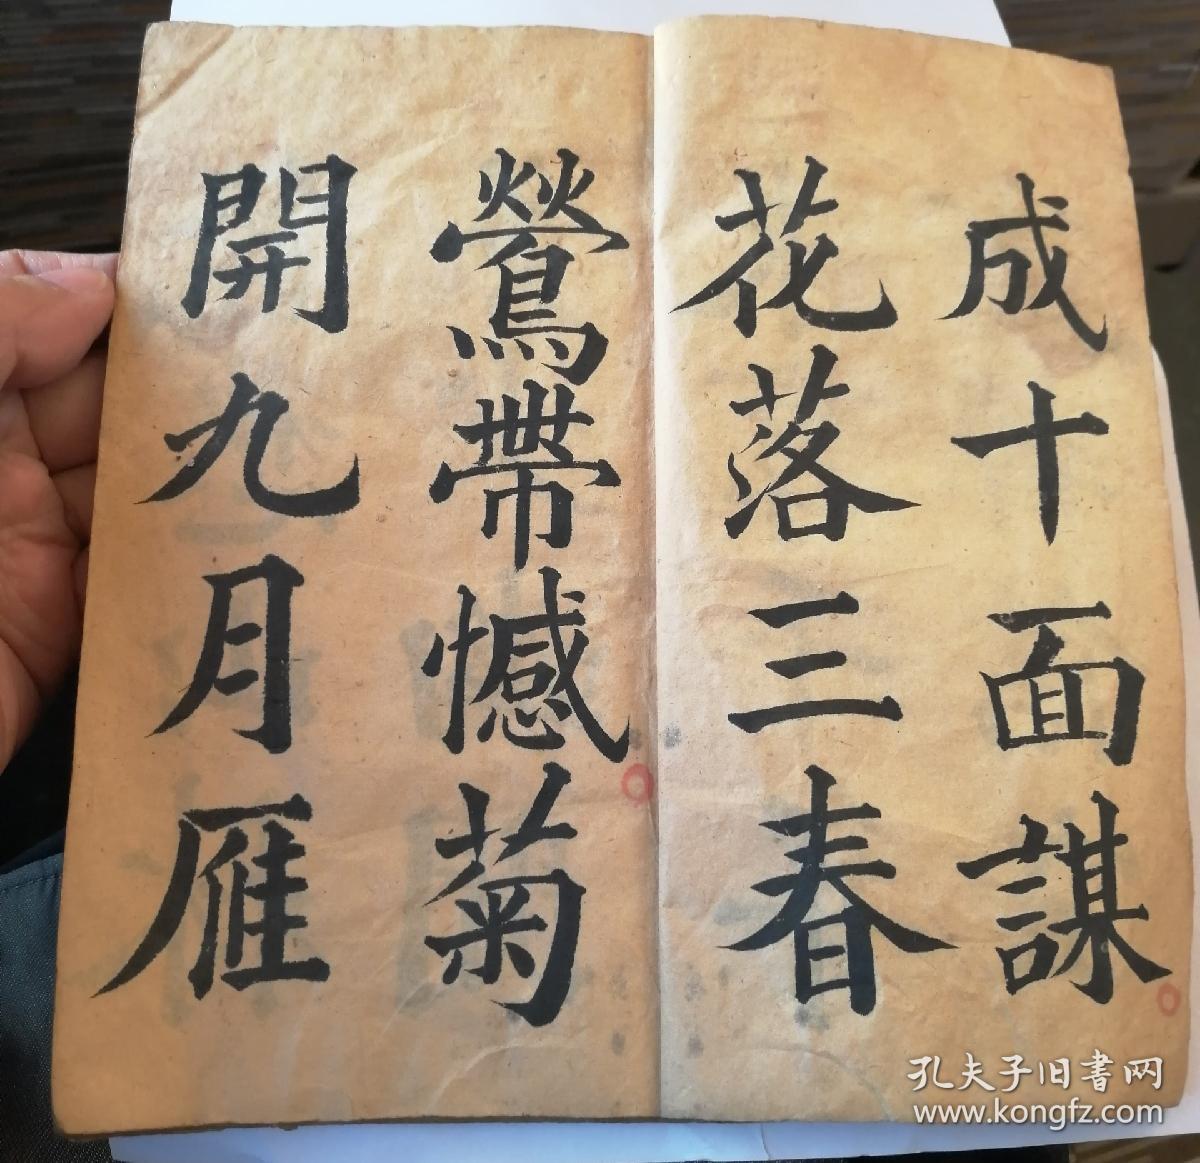 成十面謀
花落三春
鶯帶憾菊
開九月雁
孔夫子旧書网
www.kongfz.com